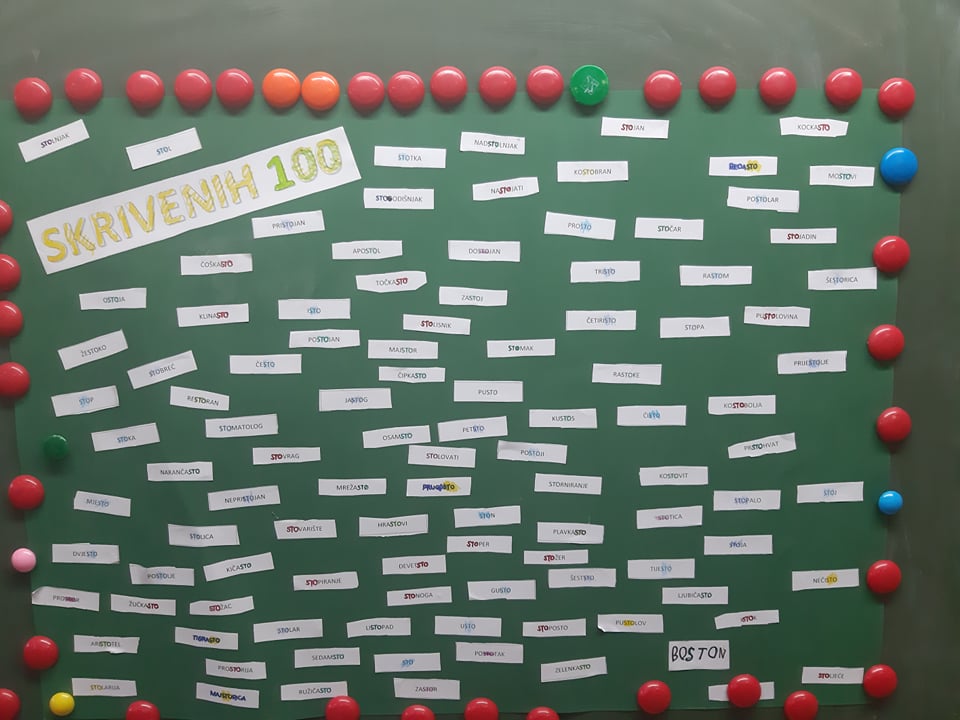 STOLNJAK
STOL
SKRIVENIH 100
STOTKA
NADSTOLNJAK
STOJAN
KOCKASTO
KOSTOBRAN
BEDASTO
MOSTOVI
STOGODIŠNJAK
NASTOJATI
POSTOLAR
PRISTOJAN
PROSTO
STOČAR
STOJADIN
APOSTOL
DOSTOJAN
ČOŠKASTO
TOČKASTO
TRISTO
RASTOM
ŠESTORICA
OSTOJA
ZASTOJ
KLINASTO
ISTO
STOLISNIK
ČETIRISTO
STOPA
PUSTOLOVINA
POSTOJAN
ŽESTOKO
MAJSTOR
STOMAK
STOBREĆ
ČESTO
ČIPKASTO
RASTOKE
PRIJESTOLJE
STOP
RESTORAN
JASTOG
PUSTO
KOSTOBOLJA
STOKA
STOMATOLOG
KUSTOS
ČISTO
OSAMSTO
PETSTO
PRSTOHVAT
STOVRAG
STOLOVATI
POSTOJI
NARANČASTO
KOSTOVIT
MREŽASTO
PRUGASTO
STORNIRANJE
MJESTO
NEPRISTOJAN
STOPALO
STOJ
STON
ISTOTICA
STOLICA
STOVARIŠTE
HRASTOVI
PLAVKASTO
DVJESTO
STOPER
STOJA
KIČASTO
DEVETSTO
STOŽER
POSTOLJE
STOPIRANJE
ŠESTSTO
TIJESTO
NEČISTO
PROSTOR
ŽUČKASTO
STOŽAC
STONOGA
GUSTO
LJUBIČASTO
ARISTOTEL
TIGRASTO
STOLAR
LISTOPAD
USTO
STOPOSTO
PUSTOLOV
ISTOK
PROSTORIJA
SEDAMSTO
STO
POSTOTAK
ZELENKASTO
BOSTON
STOLARIJA
MAJSTORICA
RUŽIČASTO
ZASTOR
STOLJEĆE